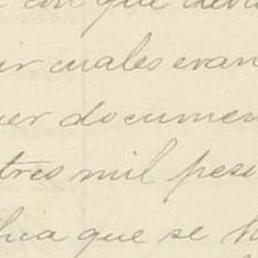 con que
ir cuales eran
er documen
tres mil pes
que se h